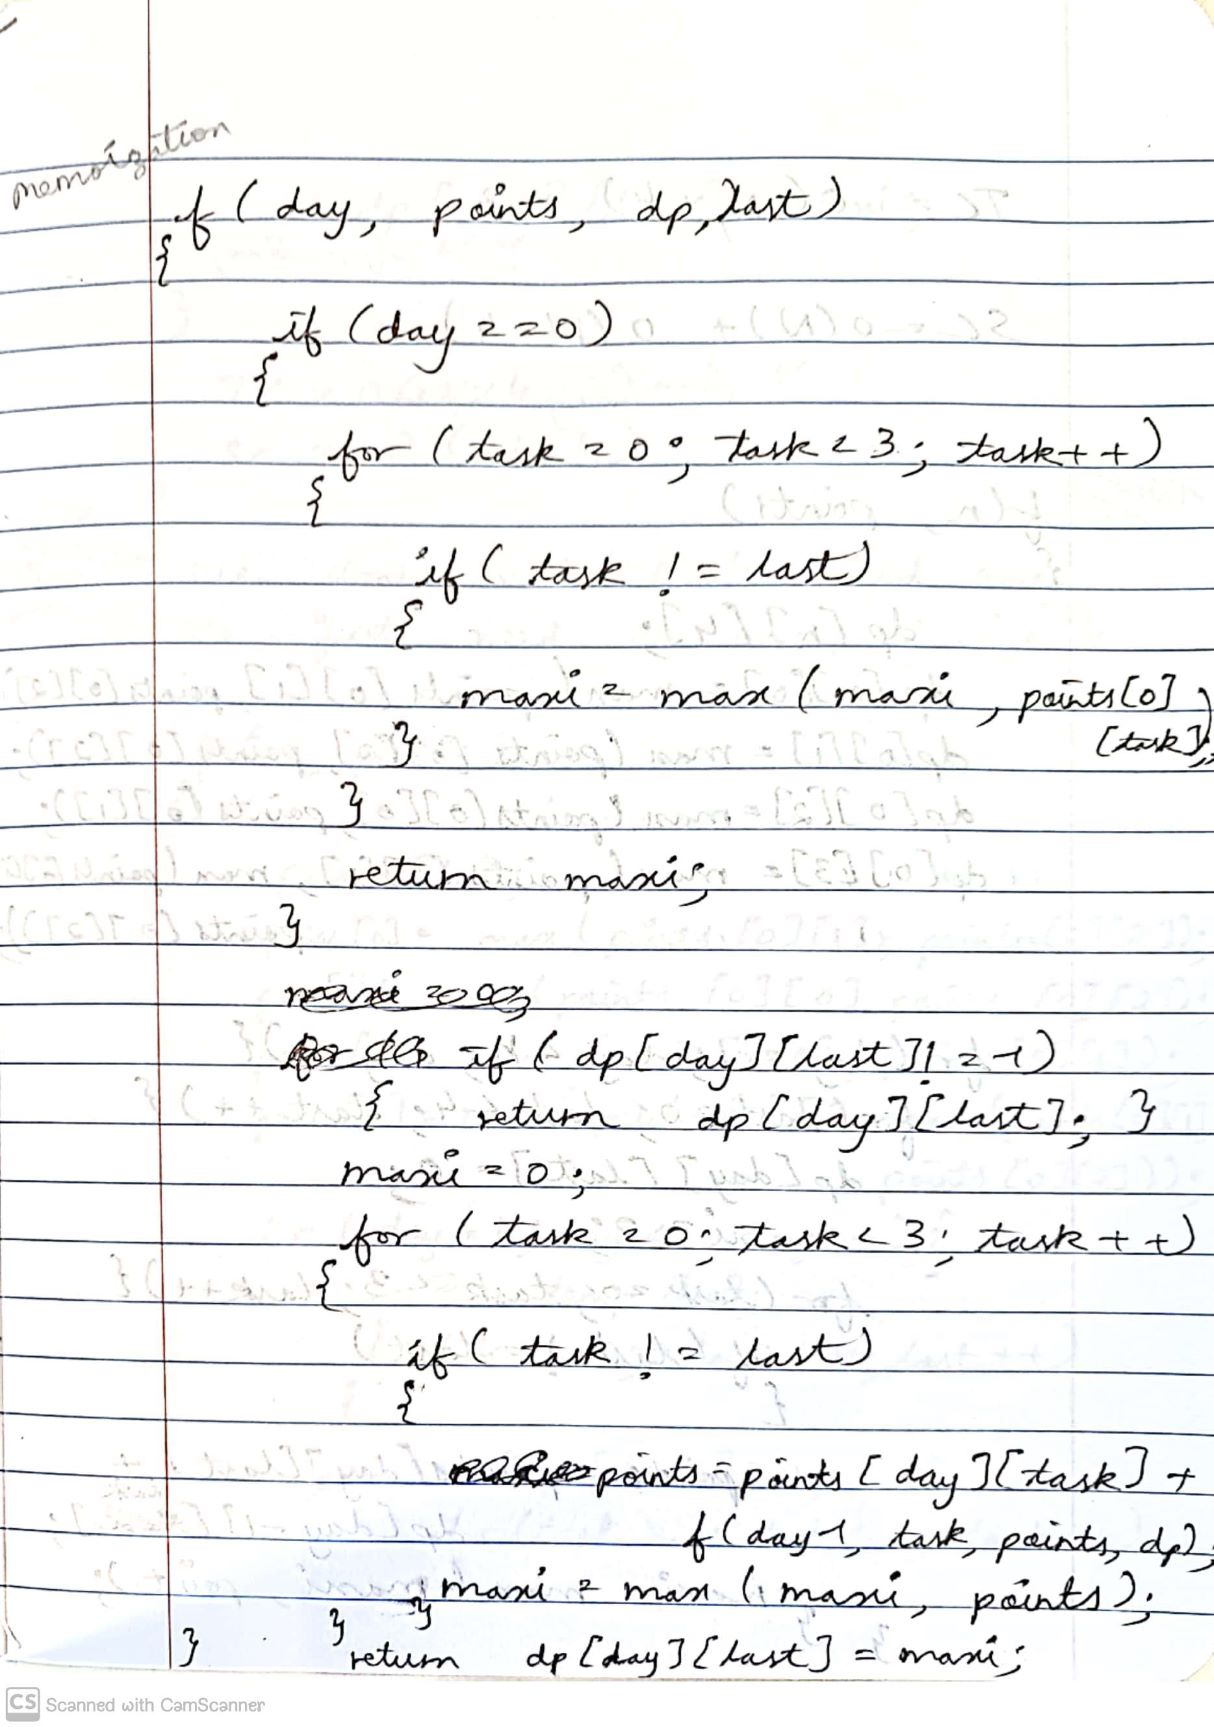 memoization
f ( day, points, dp, last )
{
if ( day == 0 )
{
for ( task = 0 ; task < 3 ; task++ )
{
if ( task != last )
{
maxi = max ( maxi , points[0]
[task]);
}
}
return maxi;
}
if ( dp [ day ] [ last ] != -1 )
{ return dp [ day ] [ last ] ; }
maxi = 0 ;
for ( task = 0 ; task < 3 ; task ++ )
{
if ( task != last )
{
points = points [ day ] [ task ] +
f ( day-1, task, points, dp );
maxi = max ( maxi, points ) ;
}
}
return dp [ day ] [ last ] = maxi ;
}
CS Scanned with CamScanner